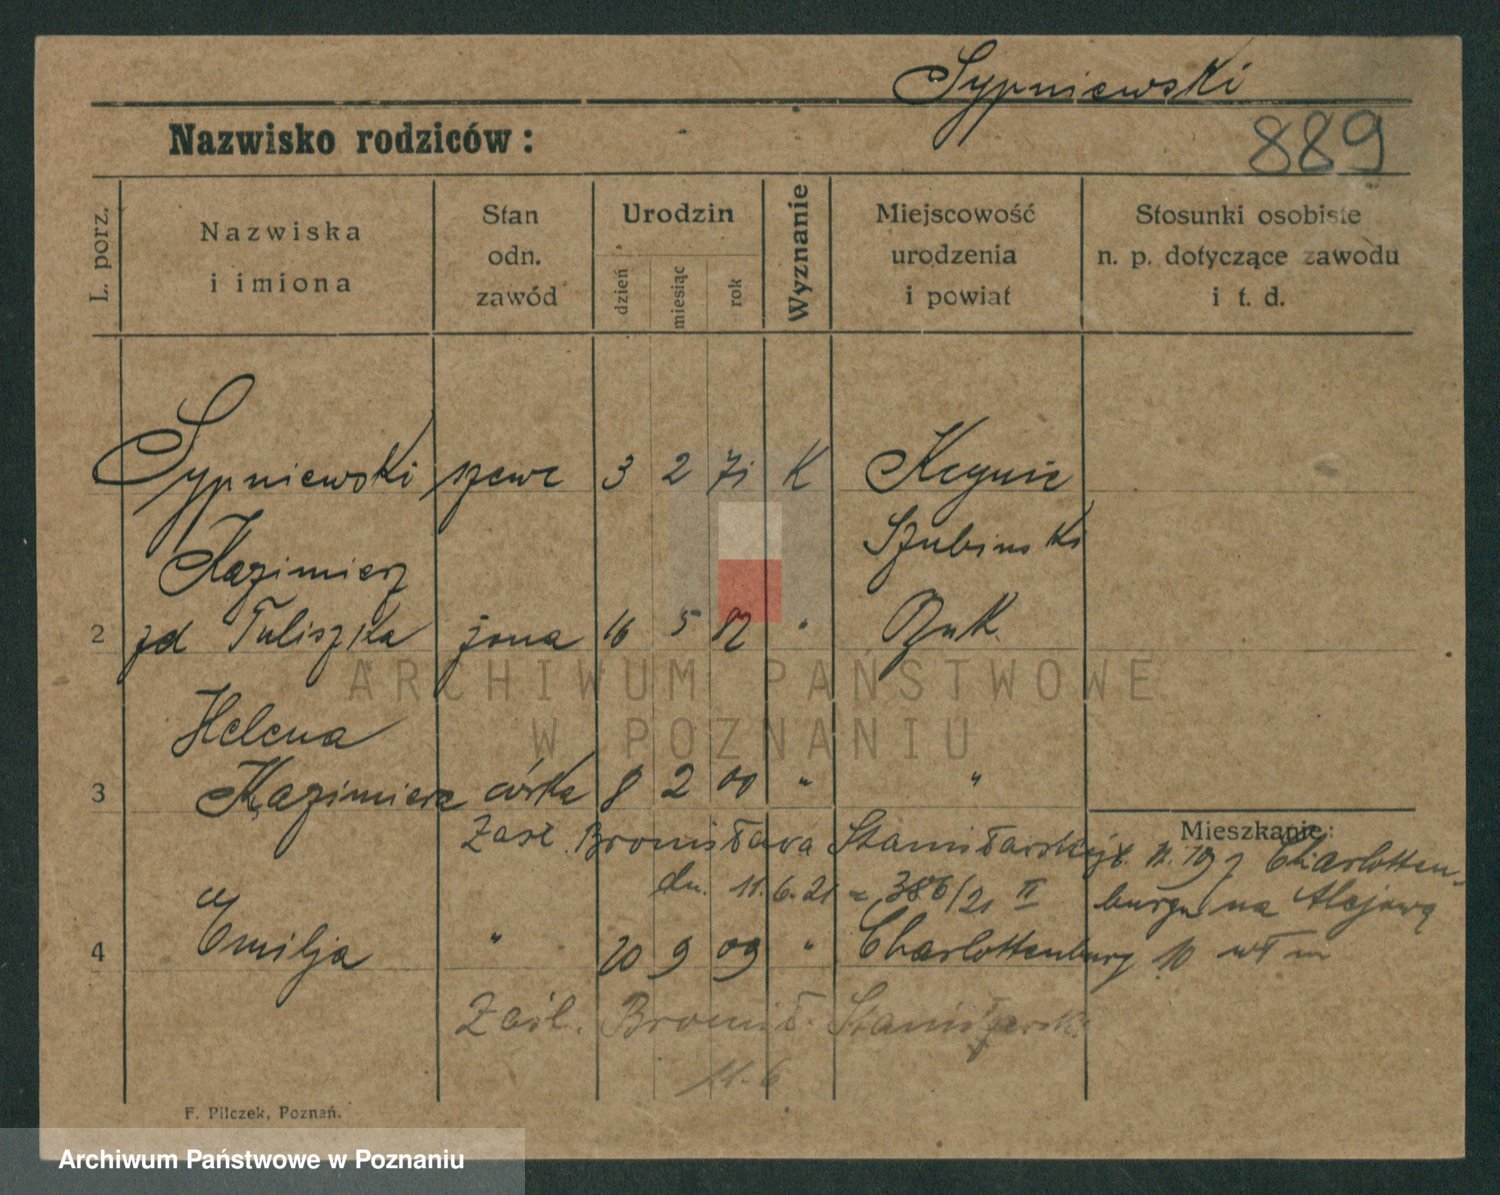 Sypniewski
Nazwisko rodziców:
889
L. porz.
Nazwiska
i imiona
Stan
odn.
zawód
Urodzin
dzień
miesiąc
rok
Wyznanie
Miejscowość
urodzenia
i powiat
Stosunki osobiste
n. p. dotyczące zawodu
i t. d.
Sypniewski szewc 3 2 71 K Kcynie
Kazimierz Szubiński
2 zd Tuliszka żona 16 5 "
Helena
3 Kazimiera córka 8 2 00 " "
Mieszkanie:
Zaśl. Bronisława Stanisłarski
dn. 11.6.21 = 386/21 II
z Charlotten-
burga na Alejową
10
4 Emilja " 20 9 09 " Charlottenburg
Zaśl. Bronisł. Stanisłarsk.
11.6
F. Pilczek, Poznań.
ARCHIWUM PAŃSTWOWE
W POZNANIU
Archiwum Państwowe w Poznaniu